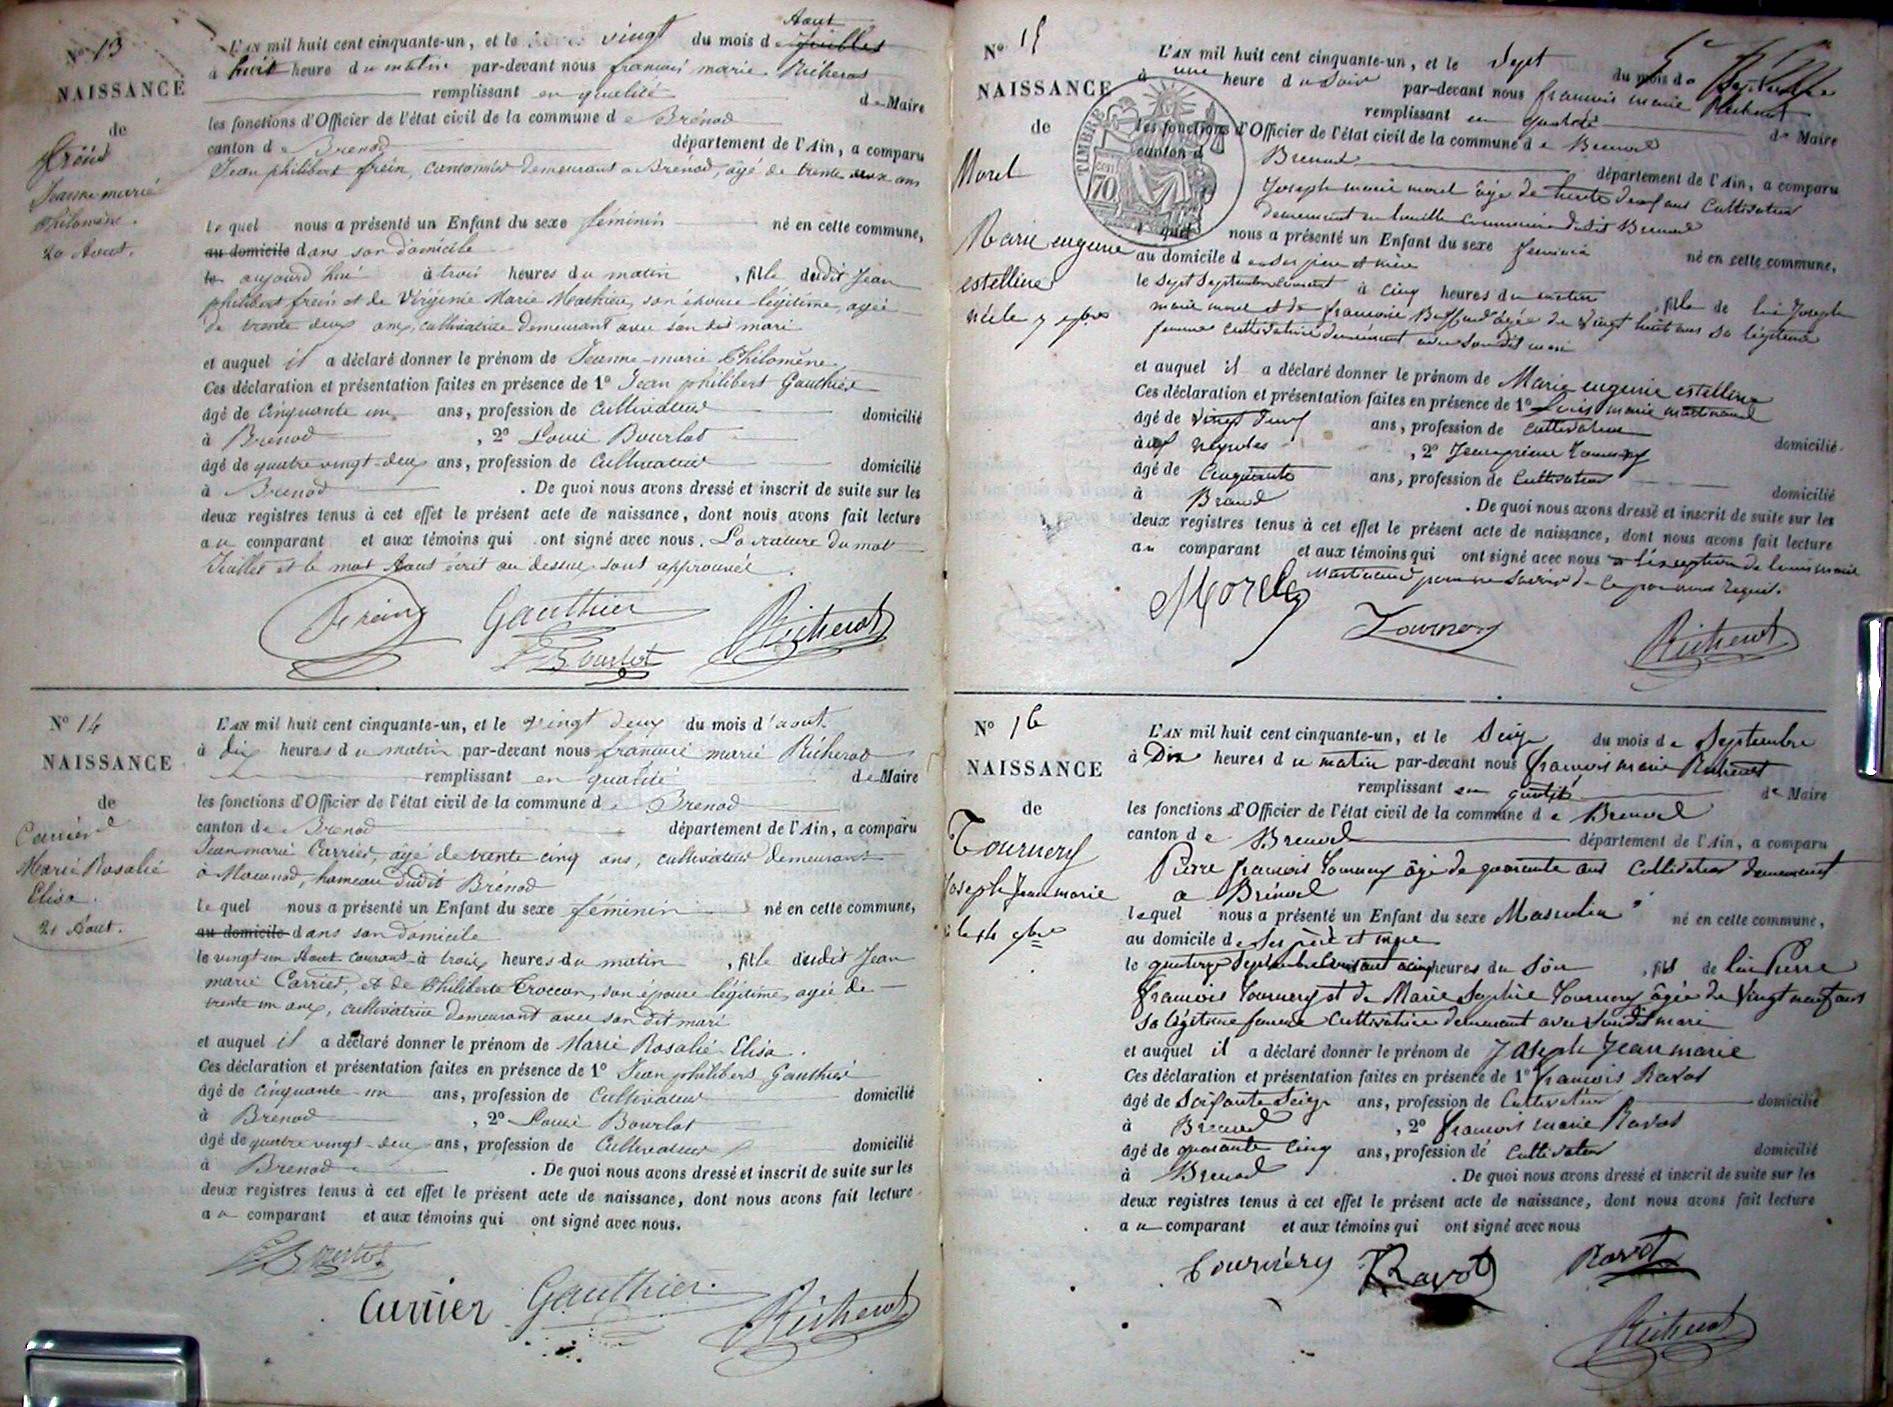 Nº 13
NAISSANCE
de
Jeanne marie
Philomène.
20 Aout.
Aout
L'AN mil huit cent cinquante-un, et le vingt du mois de Juillet
à huit heure du matin par-devant nous françois marie Richerot
remplissant en qualité de Maire
les fonctions d'Officier de l'état civil de la commune de Brénod
canton de Brenod département de l'Ain, a comparu
Jean philibert frein, cantonnier demeurant a Brénod, âgé de trente deux ans
le quel nous a présenté un Enfant du sexe féminin né en cette commune,
au domicile dans son domicile
le aujourd'hui à trois heures du matin, fille dudit Jean
philibert frein et de Virginie Marie Mathieu, son épouse légitime, agée
de trente deux ans, cultivatrice demeurant avec son dit mari
et auquel il a déclaré donner le prénom de Jeanne-marie Philomène
Ces déclaration et présentation faites en présence de 1º Jean philibert Gauthier
âgé de cinquante un ans, profession de cultivateur domicilié
à Brenod, 2º Louis Bourlot
âgé de quatre vingt-deux ans, profession de cultivateur domicilié
à Brenod. De quoi nous avons dressé et inscrit de suite sur les
deux registres tenus à cet effet le présent acte de naissance, dont nous avons fait lecture
au comparant et aux témoins qui ont signé avec nous. La rature du mot
Juillet et le mot Aout écrit au dessus sont approuvés.
Gauthier
Bourlot
Richerot
Nº 14
NAISSANCE
de
Carrier
Marie Rosalie
Elisa.
21 Aout.
L'AN mil huit cent cinquante-un, et le vingt deux du mois d'aout
à dix heures du matin par-devant nous françois marie Richerot
remplissant en qualité de Maire
les fonctions d'Officier de l'état civil de la commune de Brenod
canton de Brenod département de l'Ain, a comparu
Jean marie Carrier, âgé de trente cinq ans, cultivateur demeurant
à Macconod, hameau dudit Brénod
le quel nous a présenté un Enfant du sexe féminin né en cette commune,
au domicile dans son domicile
le vingt un Aout courant à trois heures du matin, fille dudit Jean
marie Carrier, et de Philiberte Troccon, son épouse légitime, agée de
trente un ans, cultivatrice demeurant avec son dit mari
et auquel il a déclaré donner le prénom de Marie Rosalie Elisa.
Ces déclaration et présentation faites en présence de 1º Jean philibert Gauthier
âgé de cinquante un ans, profession de cultivateur domicilié
à Brenod, 2º Louis Bourlot
âgé de quatre vingt-deux ans, profession de cultivateur domicilié
à Brenod. De quoi nous avons dressé et inscrit de suite sur les
deux registres tenus à cet effet le présent acte de naissance, dont nous avons fait lecture
au comparant et aux témoins qui ont signé avec nous.
Bourlot
Carrier Gauthier
Richerot
Nº 15
NAISSANCE
de
Morel
Marie eugenie
estelline
née le 7 7bre
TIMBRE
70
L'AN mil huit cent cinquante-un, et le Sept du mois de Septembre
à une heure du Soir par-devant nous françois marie Richerot
remplissant en qualité de Maire
les fonctions d'Officier de l'état civil de la commune de Brenod
canton d Brenod département de l'Ain, a comparu
Joseph marie morel âgé de trente deux ans cultivateur
demeurant en commune dudit Brenod
l quel nous a présenté un Enfant du sexe feminin né en cette commune,
au domicile de ses père et mère
le sept Septembre courant à cinq heures du matin, fille de lui Joseph
marie morel et de francoise âgée de vingt huit ans sa légitime
femme cultivatrice demeurant avec son dit mari
et auquel il a déclaré donner le prénom de Marie eugenie estelline
Ces déclaration et présentation faites en présence de 1º Louis marie martinand
âgé de vingt neuf ans, profession de cultivateur domicilié
à, 2º Jean pierre Tournery
âgé de Cinquante ans, profession de Cultivateur domicilié
à Brenod. De quoi nous avons dressé et inscrit de suite sur les
deux registres tenus à cet effet le présent acte de naissance, dont nous avons fait lecture
au comparant et aux témoins qui ont signé avec nous a l'exception de Louis marie
Martinand pour ne savoir de ce par nous requis.
Morel
Tournery
Richerot
Nº 16
NAISSANCE
de
Tournery
Joseph Jean marie
le 14 7bre
L'AN mil huit cent cinquante-un, et le Seize du mois de Septembre
à Dix heures du matin par-devant nous françois marie Richerot
remplissant en qualité de Maire
les fonctions d'Officier de l'état civil de la commune de Brenod
canton de Brenod département de l'Ain, a comparu
Pierre françois Tournery âgé de quarante ans cultivateur demeurant
a Brénod
lequel nous a présenté un Enfant du sexe Masculin né en cette commune,
au domicile de ses père et mère
le quatorze Septembre courant à cinq heures du Soir, fils de lui Pierre
françois Tournery et de Marie Sophie Tournery âgée de Vingt neuf ans
sa légitime femme cultivatrice demeurant avec son dit mari
et auquel il a déclaré donner le prénom de Joseph Jean marie
Ces déclaration et présentation faites en présence de 1º françois Ravot
âgé de Soixante Seize ans, profession de Cultivateur domicilié
à Brenod, 2º françois marie Ravot
âgé de quarante cinq ans, profession de cultivateur domicilié
à Brenod. De quoi nous avons dressé et inscrit de suite sur les
deux registres tenus à cet effet le présent acte de naissance, dont nous avons fait lecture
au comparant et aux témoins qui ont signé avec nous
Tournery Ravot Ravot
Richerot